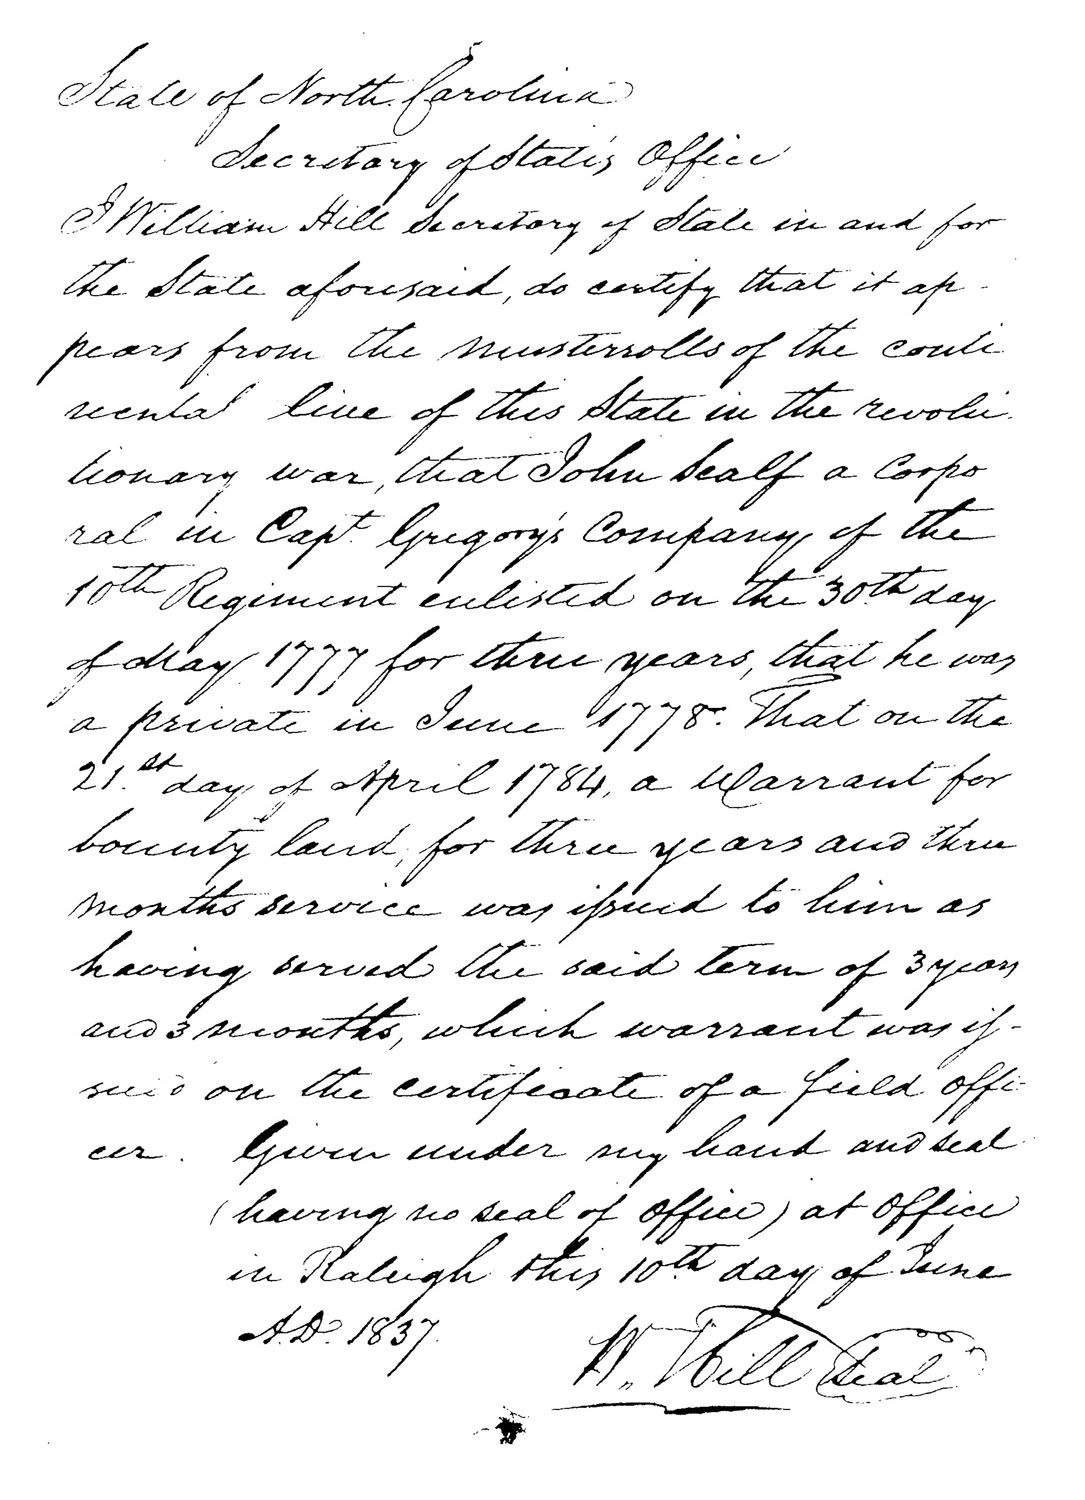 State of North Carolina
Secretary of State's Office
I William Hill Secretary of State in and for
the State aforesaid, do certify that it ap-
pears from the musterrolls of the conti
nental line of this State in the revolu-
tionary war, that John Scalf a Corpo
ral in Capt. Gregory's Company of the
10th Regiment enlisted on the 30th day
of May 1777 for three years, that he was
a private in June 1778. That on the
21.st day of April 1784, a Warrant for
bounty land, for three years and three
months service was issued to him as
having served the said term of 3 years
and 3 months, which warrant was is-
sued on the certificate of a field offi-
cer. Given under my hand and seal
(having no seal of office) at Office
in Raleigh this 10th day of June
A.D. 1837.
W. Hill Seal